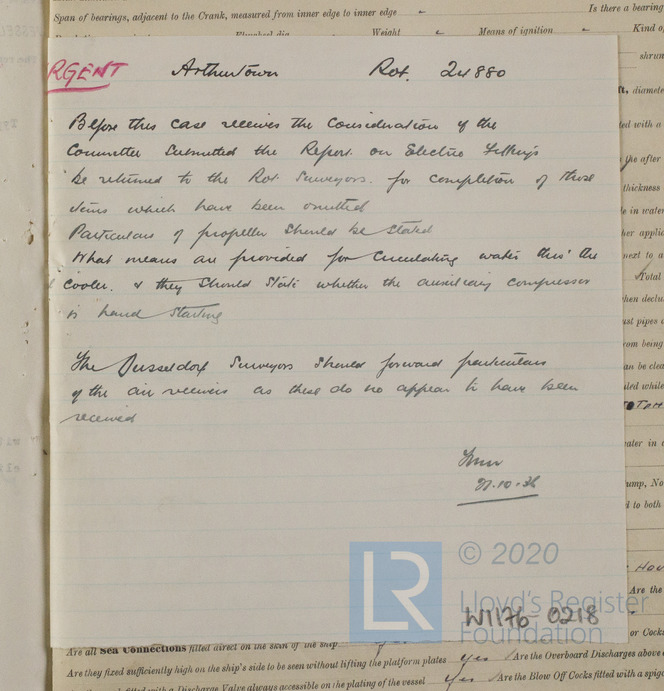 Span of bearings, adjacent to the Crank, measured from inner edge to inner edge
Is there a bearing
Weight Means of ignition Kind o
shrun
RGENT Arthurtown Rot. 24880
ft, diamete
Before this case receives the Consideration of the
Committee Submitted the Report on Electric Fittings
be returned to the Rot. Surveyors. for completion of those
items which have been omitted
Particulars of propeller should be stated
What means are provided for circulating water thro' the
cooler. & they should state whether the auxiliary compressor
is hand starting
The Dusseldorf Surveyors should forward particulars
of the air receivers as these do no appear to have been
received
.10.36
© 2020
LR
Lloyd's Register
Foundation
W1176-0218
Are all Sea Connections fitted direct on the skin of the ship
or Cocks
Are they fixed sufficiently high on the ship's side to be seen without lifting the platform plates yes Are the Overboard Discharges above
fitted with a Discharge Valve always accessible on the plating of the vessel yes Are the Blow Off Cocks fitted with a spig